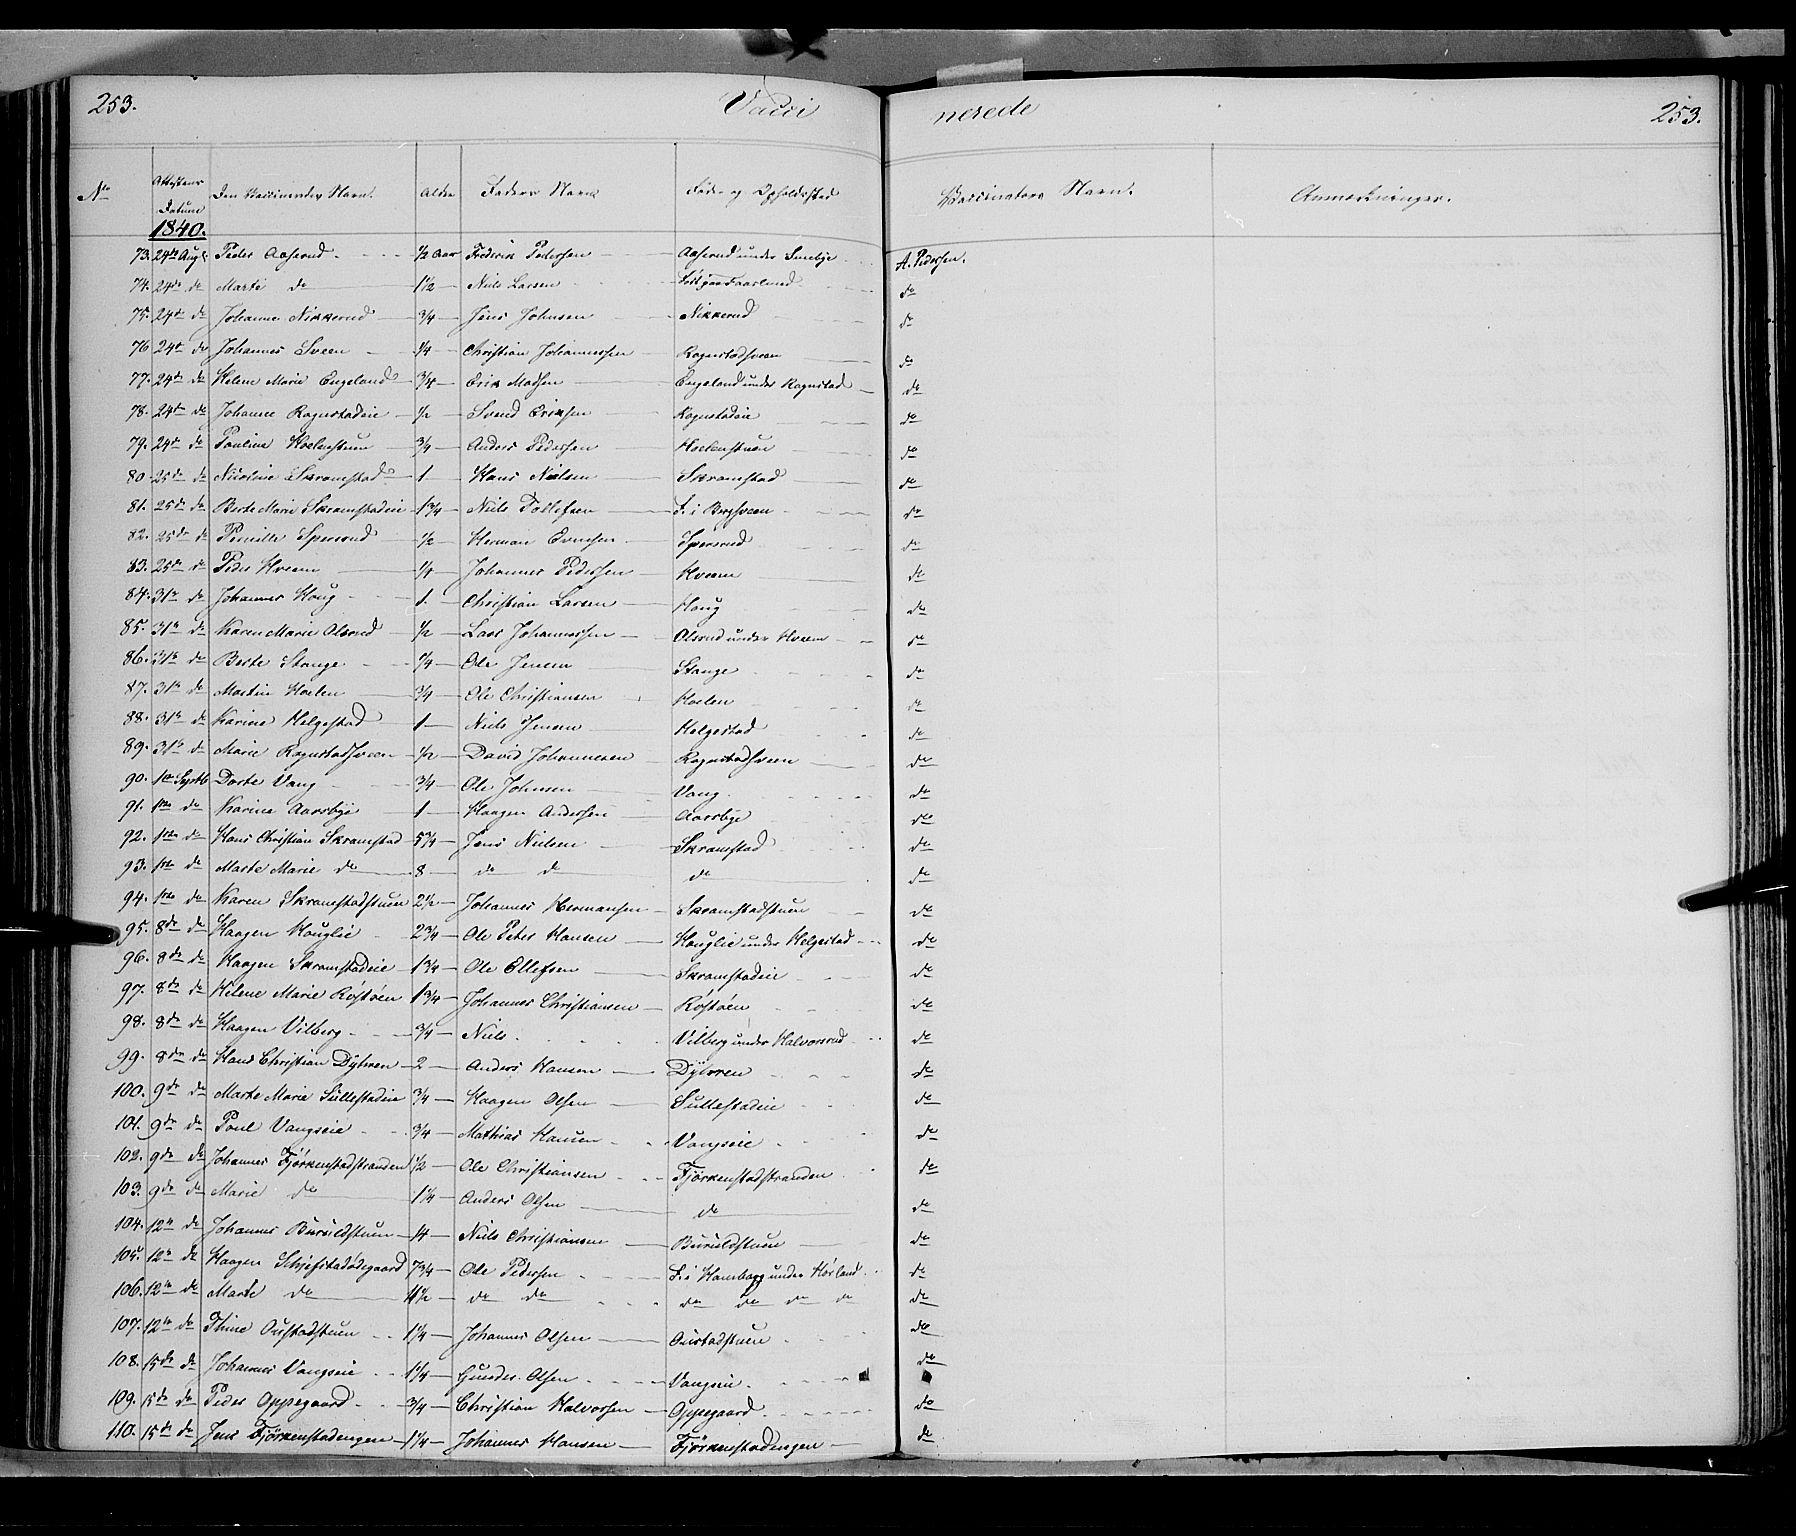 253. Vacci nerede 253.
No Attestens Datum Den Vaccineredes Navn. Alder Faders Navn Føde- og Opholdssted Vaccinators Navn. Anmærkninger.
1840.
73. 24de Aug. Peder Aaserud ½ Aar Frederik Pedersen Aaserud under Smebye A. Pedersen.
74. 24de do Marte do 1½ Niels Larsen do
75. 24de do Johanne Nikkerud ¾ Jens Johnsen Nikkerud do
76 24de do Johannes Sveen ¼ Christian Johannessen Rognstadsveen do
77. 24de do Helene Marie Engeland ¾ Erik Madsen Engeland under Rognstad do
78. 24de do Johanne Rognstadeie ½ Svend Eriksen Rognstadeie do
79. 24de do Pauline Hoelenstuen ¾ Anders Pedersen Hoelenstuen do
80. 25de do Nicoline Skramstad 1 Hans Nielsen Skramstad do
81. 25de do Berte Marie Skramstadeie 1¾ Niels Tollefsen F. i Bergsveen do
82. 25de do Pernille Spersrud ½ Herman Evensen Spersrud do
83. 25de do Peder Hveem ¼ Johannes Pedersen Hveem do
84. 31te do Johannes Houg 1. Christian Larsen Houg do
85. 31te do Karen Marie Olsrud ½ Lars Johannessen Olsrud under Hveem do
86. 31te do Berte Stange ¼ Ole Jensen Stange do
87. 31te do Martin Hoelen ¾ Ole Christiansen Hoelen do
88. 31te do Karine Helgestad 1 Niels Jensen Helgestad do
89. 31te do Marie Rognstadsveen ½ David Johannesen Rognstadsveen do
90. 1te Septb Dorte Vang ¾ Ole Johnsen Vang do
91. 1te do Karine Aarsbye 1 Haagen Andersen Aarsbye do
92. 1te do Hans Christian Skramstad 5¾ Jens Nielsen Skramstad do
93. 1te do Marte Marie do 8 do do do do
94. 1te do Karen Skramstadstuen 2½ Johannes Hermansen Skramstadstuen do
95. 8de do Haagen Houglie 2¾ Ole Peter Hansen Houglie under Helgestad do
96. 8de do Haagen Skramstadeie 1¾ Ole Ollefsen Skramstadeie do
97. 8de do Helene Marie Røstøen 1¾ Johannes Christiansen Røstøen do
98. 8de do Haagen Vilberg ¾ Niels Vilberg under Halvorsrud do
99. 8de do Hans Christian Dÿhren 2 Anders Hansen Dÿhren do
100. 9de do Marte Marie Sullestadeie ¾ Haagen Olsen Sullestadeie do
101. 9de do Poul Vangseie ¾ Mathias Hansen Vangseie do
102. 9de do Johannes Fjørkenstadstranden ½ Ole Christiansen Fjørkenstadstranden do
103. 9de do Marie do 1¼ Anders Olsen do do
104. 12te do Johannes Buruldstuen ¼ Niels Christiansen Buruldstuen do
105. 12te do Haagen Schjefstadødegaard 7¾ Ole Pedersen F. i Hambogg under Hørland do
106. 12te do Marte do 11½ do do do do do do do
107. 12te do Thine Oustadstuen 1¼ Johannes Olsen Oustadstuen do
108. 15de do Johannes Vangseie 1¼ Gunder Olsen Vangseie do
109. 15de do Peder Oppegaard ¾ Christian Halvorsen Oppegaard do
110. 15de do Jens Fjørkenstadengen 1¼ Johannes Hansen Fjørkenstadengen do